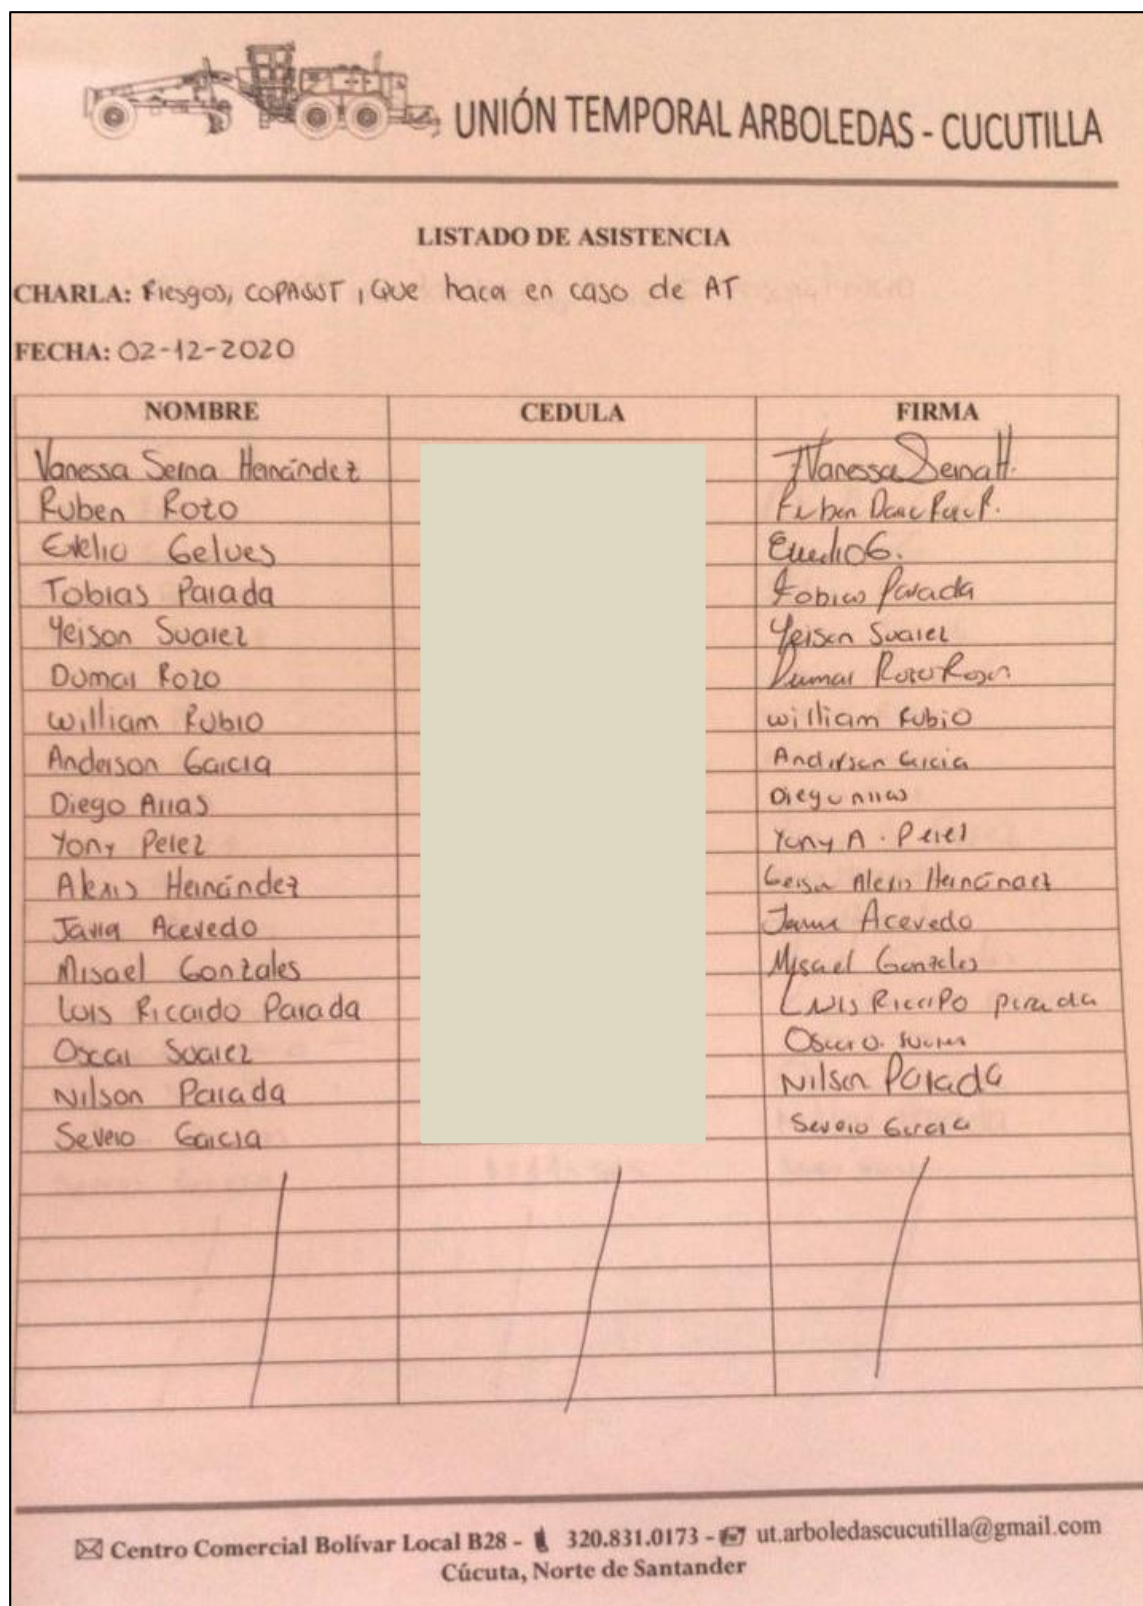 UNIÓN TEMPORAL ARBOLEDAS - CUCUTILLA
LISTADO DE ASISTENCIA
CHARLA: Riesgos, COPASST, Que hacer en caso de AT
FECHA: 02-12-2020
NOMBRE CEDULA FIRMA
Vanessa Serna Hernández Vanessa Serna H.
Ruben Rozo Ruben
Evelio Gelves Evelio G.
Tobias Parada Tobias Parada
Yeison Suarez Yeison Suarez
Dumar Rozo Dumar Rozo
William Rubio william Rubio
Anderson Garcia Anderson Garcia
Diego Arias Diego Arias
Yony Perez Yony A. Perez
Alexis Hernández Alexis Hernández
Acevedo Acevedo
Misael Gonzales Misael Gonzales
Luis Ricardo Parada Luis parada
Oscar Suarez Oscar
Nilson Parada Nilson Parada
Severo Garcia Severo Garcia
Centro Comercial Bolívar Local B28 - 320.831.0173 - ut.arboledascucutilla@gmail.com
Cúcuta, Norte de Santander